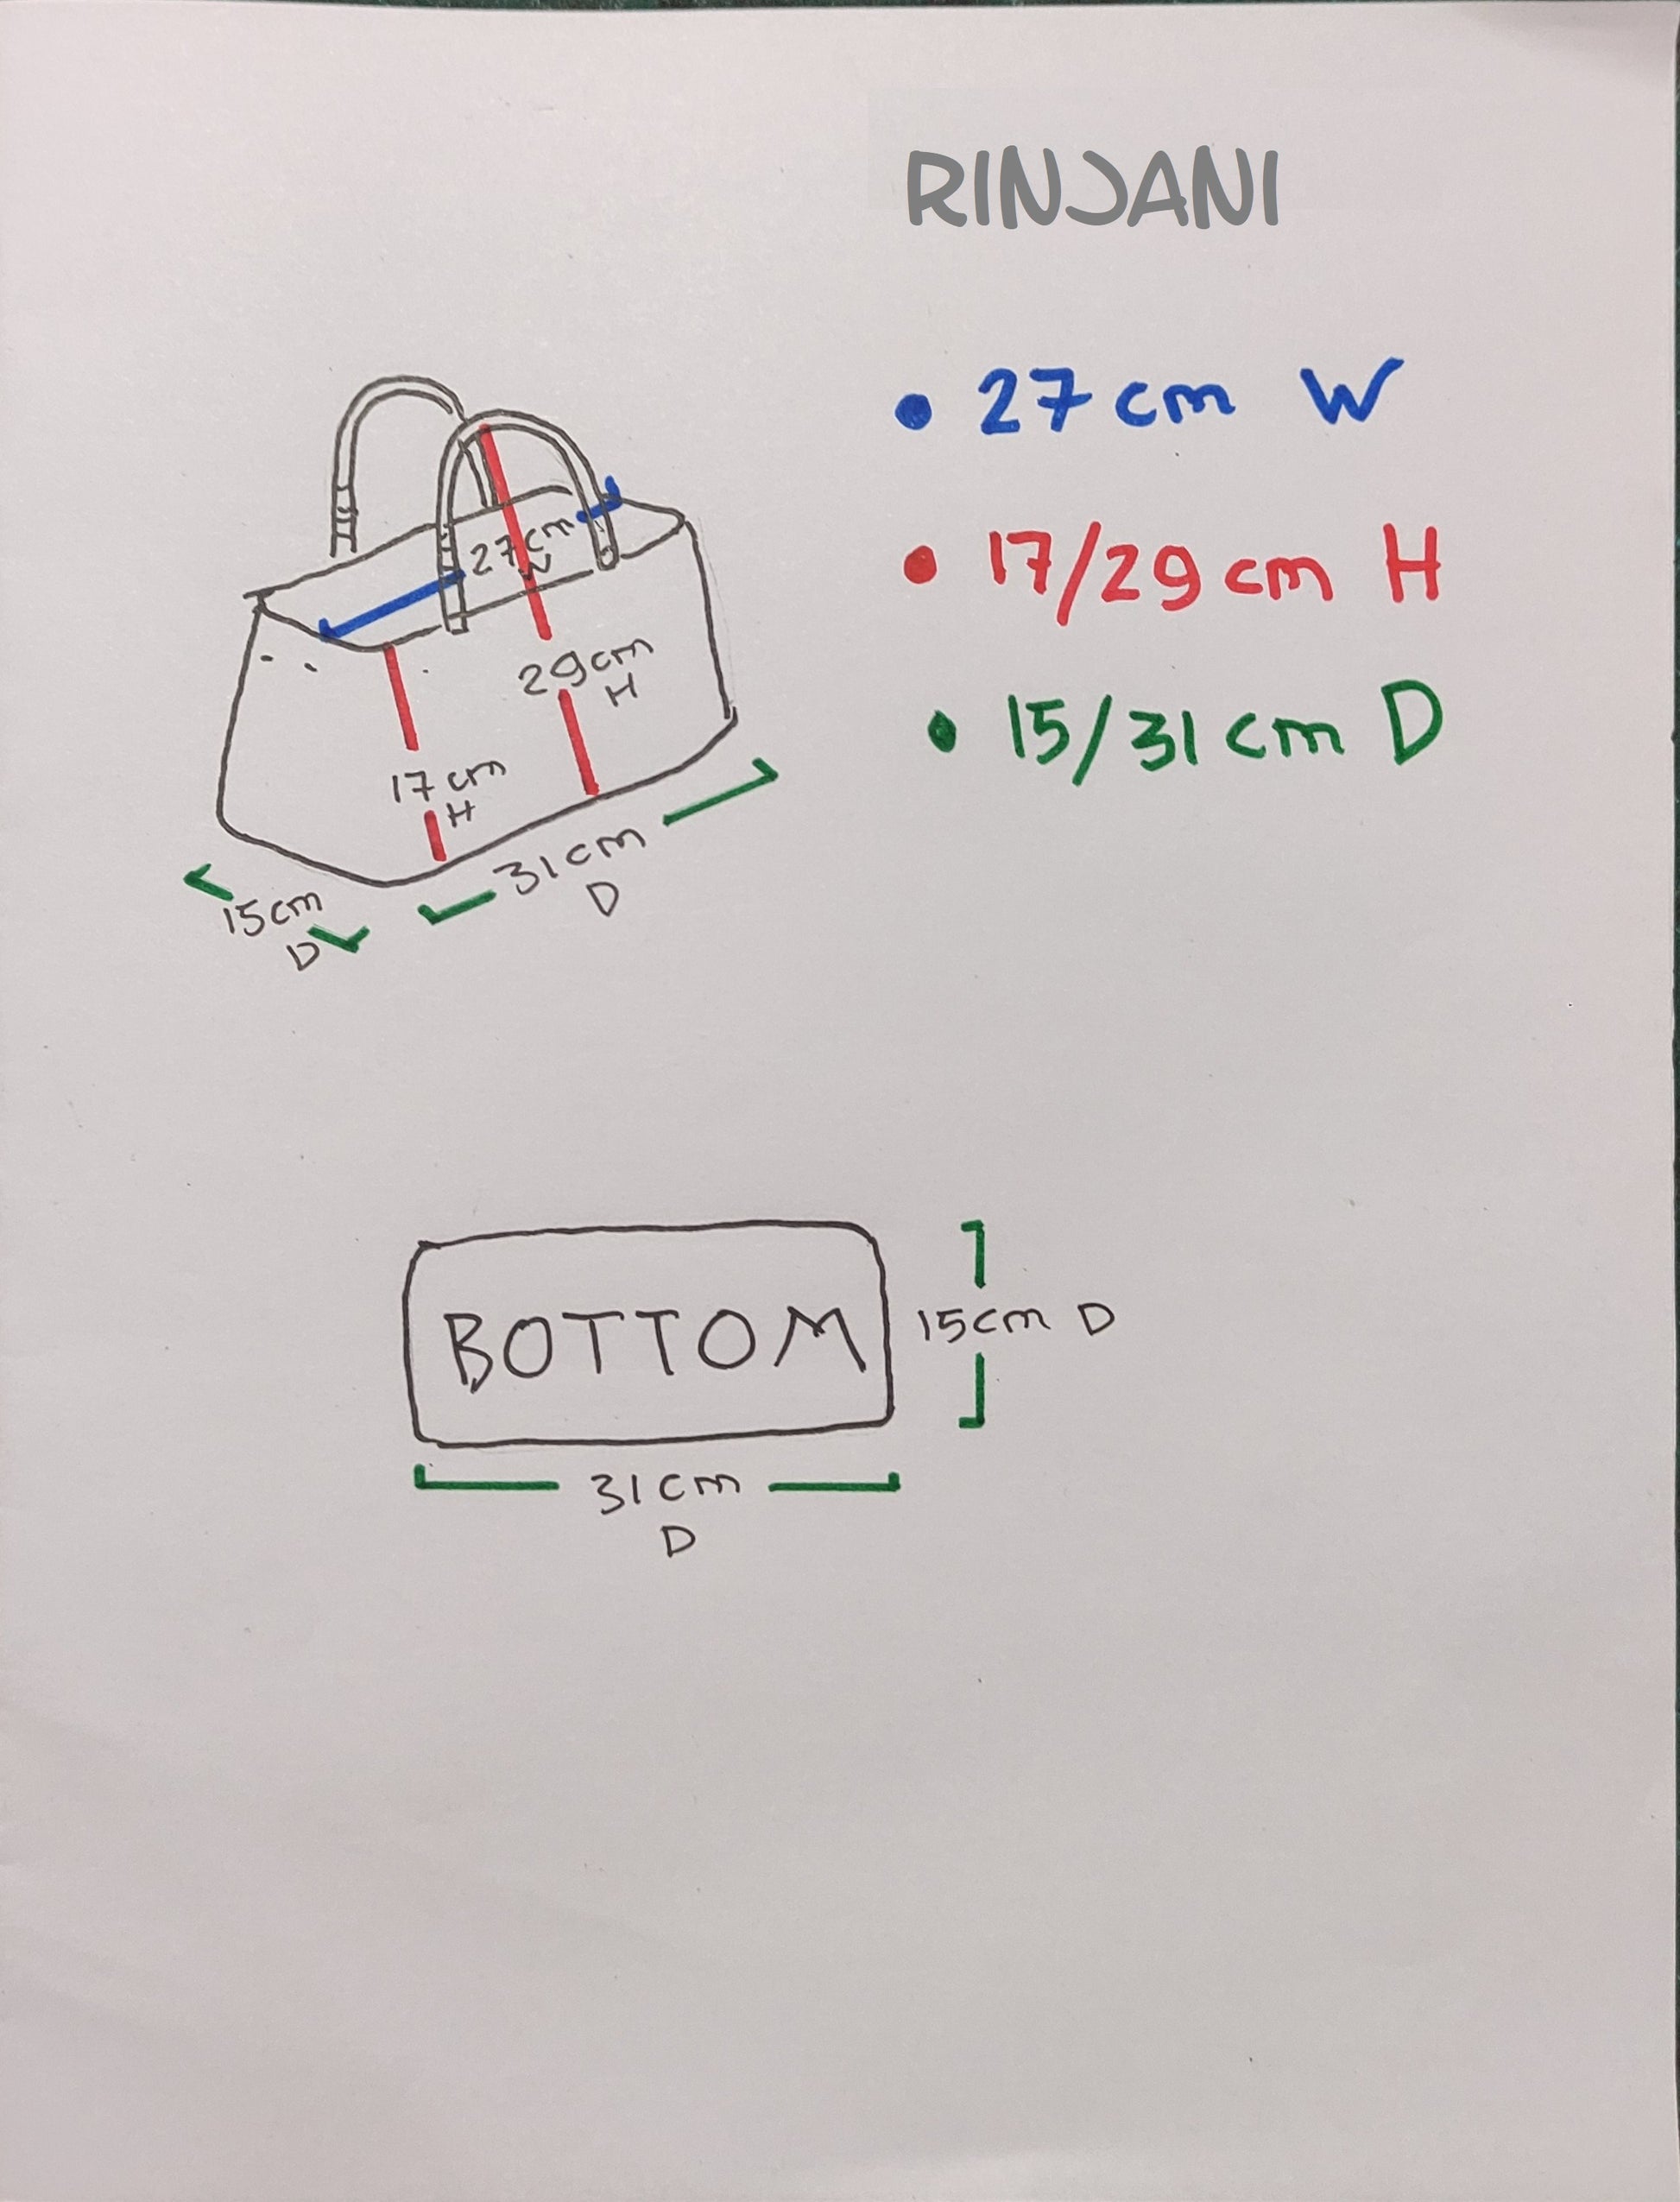 RINJANI
• 27 cm W
• 17/29 cm H
• 15/31 cm D
27 cm
W
29 cm
H
17 cm
H
31 cm
D
15 cm
D
BOTTOM
15 cm D
31 cm
D